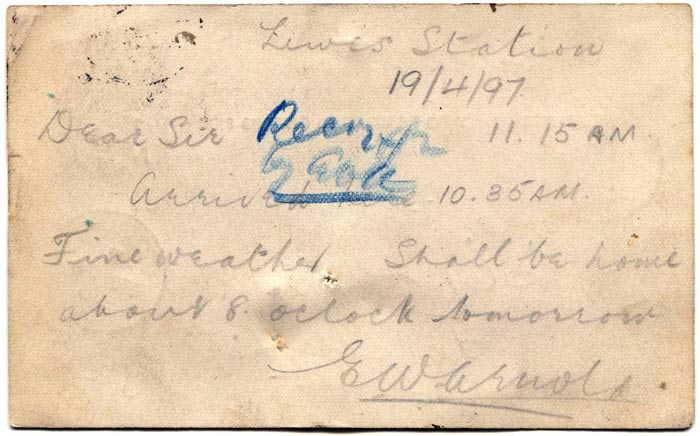 Lewis Station
19/4/97
Dear Sir 11.15 AM.
Arrived here 10.35 AM.
Fine weather Shall be home
about 8. oclock tomorrow
E W Arnold